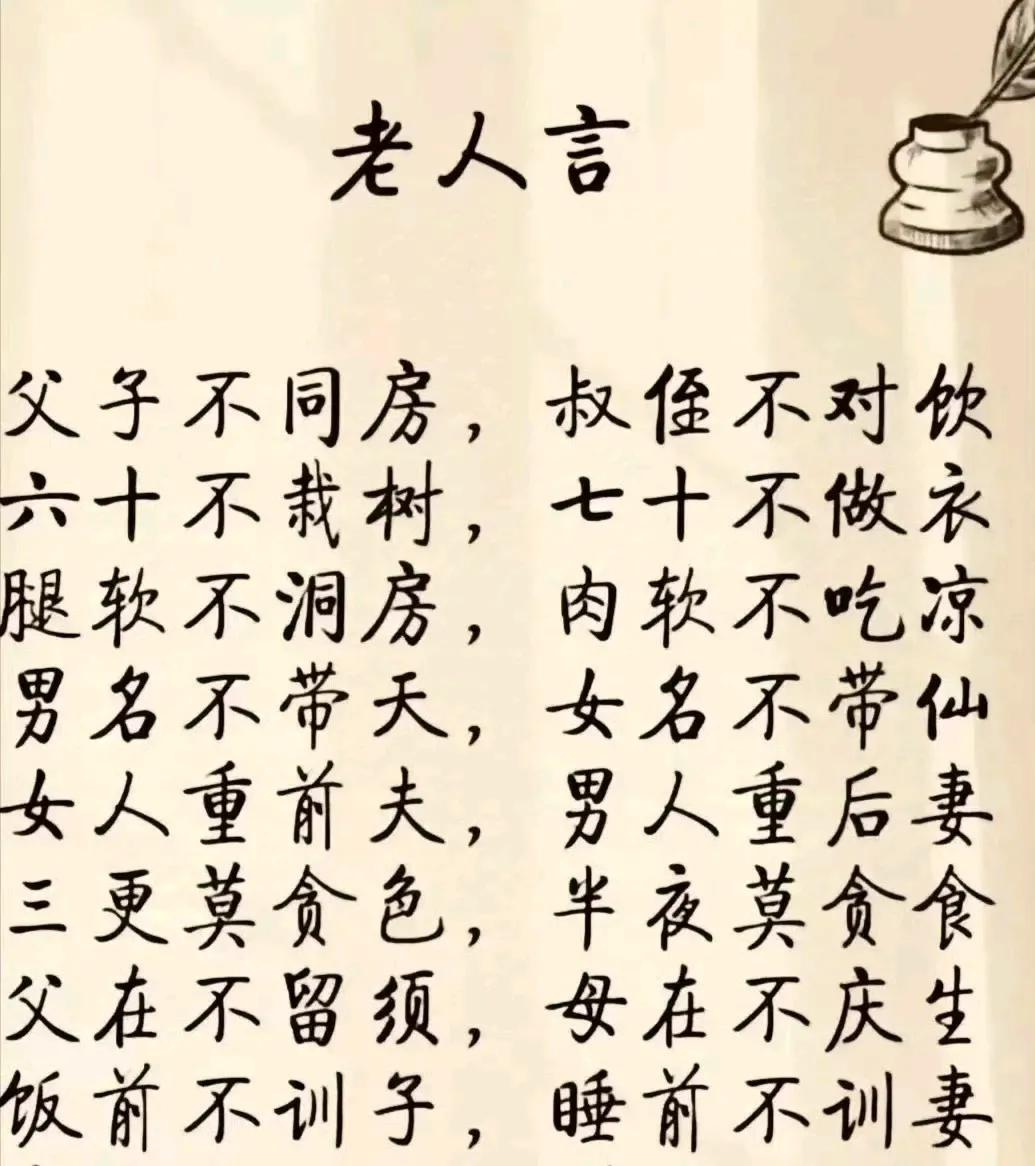 老人言
父子不同房，叔侄不对饮
六十不栽树，七十不做衣
腿软不洞房，肉软不吃凉
男名不带天，女名不带仙
女人重前夫，男人重后妻
三更莫贪色，半夜莫贪食
父在不留须，母在不庆生
饭前不训子，睡前不训妻